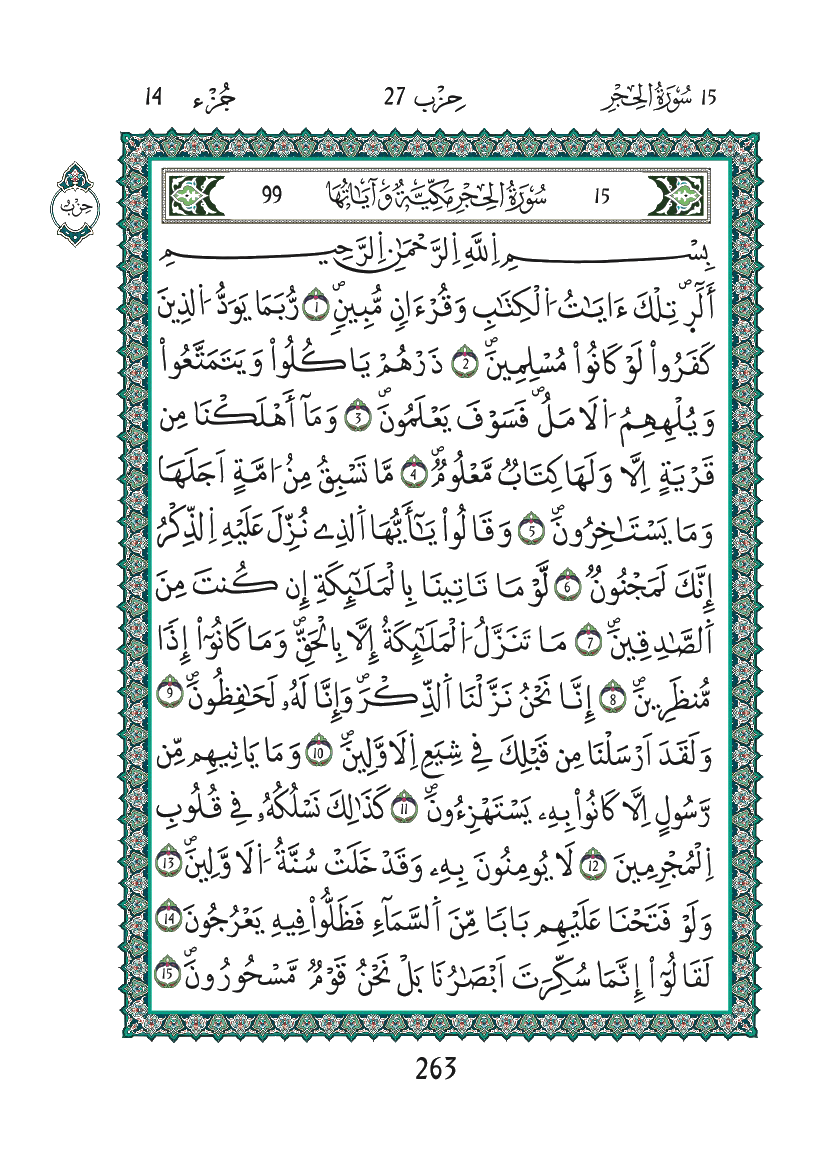 15 سُورَةُ الْحِجْرِ حِزْب 27 جُزْء 14
15 سُورَةُ الْحِجْرِ مَكِّيَّةٌ وَآيَاتُهَا 99
حِزْب
بِسْمِ اِ۬للَّهِ اِ۬لرَّحْمَٰنِ اِ۬لرَّحِيمِ
أَلَٓرۖ تِلْكَ ءَايَٰتُ اُ۬لْكِتَٰبِ وَقُرْءَانٖ مُّبِينٖۖ 1 رُّبَمَا يَوَدُّ اُ۬لذِينَ
كَفَرُواْ لَوْ كَانُواْ مُسْلِمِينَۖ 2 ذَرْهُمْ يَاكُلُواْ وَيَتَمَتَّعُواْ
وَيُلْهِهِمُ اُ۬لَامَلُۖ فَسَوْفَ يَعْلَمُونَۖ 3 وَمَآ أَهْلَكْنَا مِن
قَرْيَةٍ اِلَّا وَلَهَا كِتَابٞ مَّعْلُومٞۖ 4 مَّا تَسْبِقُ مِنُ ا۟مَّةٍ اَجَلَهَا
وَمَا يَسْتَٰخِرُونَۖ 5 وَقَالُواْ يَٰٓأَيُّهَا اَ۬لذِے نُزِّلَ عَلَيْهِ اِ۬لذِّكْرُ
إِنَّكَ لَمَجْنُونٞۖ 6 لَّوْ مَا تَاتِينَا بِالْمَلَٰٓئِكَةِ إِن كُنتَ مِنَ
اَ۬لصَّٰدِقِينَۖ 7 مَا تَنَزَّلُ اُ۬لْمَلَٰٓئِكَةُ إِلَّا بِالْحَقِّۖ وَمَا كَانُوٓاْ إِذاٗ
مُّنظَرِينَۖ 8 إِنَّا نَحْنُ نَزَّلْنَا اَ۬لذِّكْرَۖ وَإِنَّا لَهُۥ لَحَٰفِظُونَۖ 9
وَلَقَدَ اَرْسَلْنَا مِن قَبْلِكَ فِے شِيَعِ اِ۬لَاوَّلِينَۖ 10 وَمَا يَاتِيهِم مِّن
رَّسُولٍ اِلَّا كَانُواْ بِهِۦ يَسْتَهْزِءُونَۖ 11 كَذَٰلِكَ نَسْلُكُهُۥ فِے قُلُوبِ
اِ۬لْمُجْرِمِينَ 12 لَا يُومِنُونَ بِهِۦ وَقَدْ خَلَتْ سُنَّةُ اُ۬لَاوَّلِينَۖ 13
وَلَوْ فَتَحْنَا عَلَيْهِم بَاباٗ مِّنَ اَ۬لسَّمَآءِ فَظَلُّواْ فِيهِ يَعْرُجُونَ 14
لَقَالُوٓاْ إِنَّمَا سُكِّرَتَ اَبْصَٰرُنَا بَلْ نَحْنُ قَوْمٞ مَّسْحُورُونَۖ 15
263